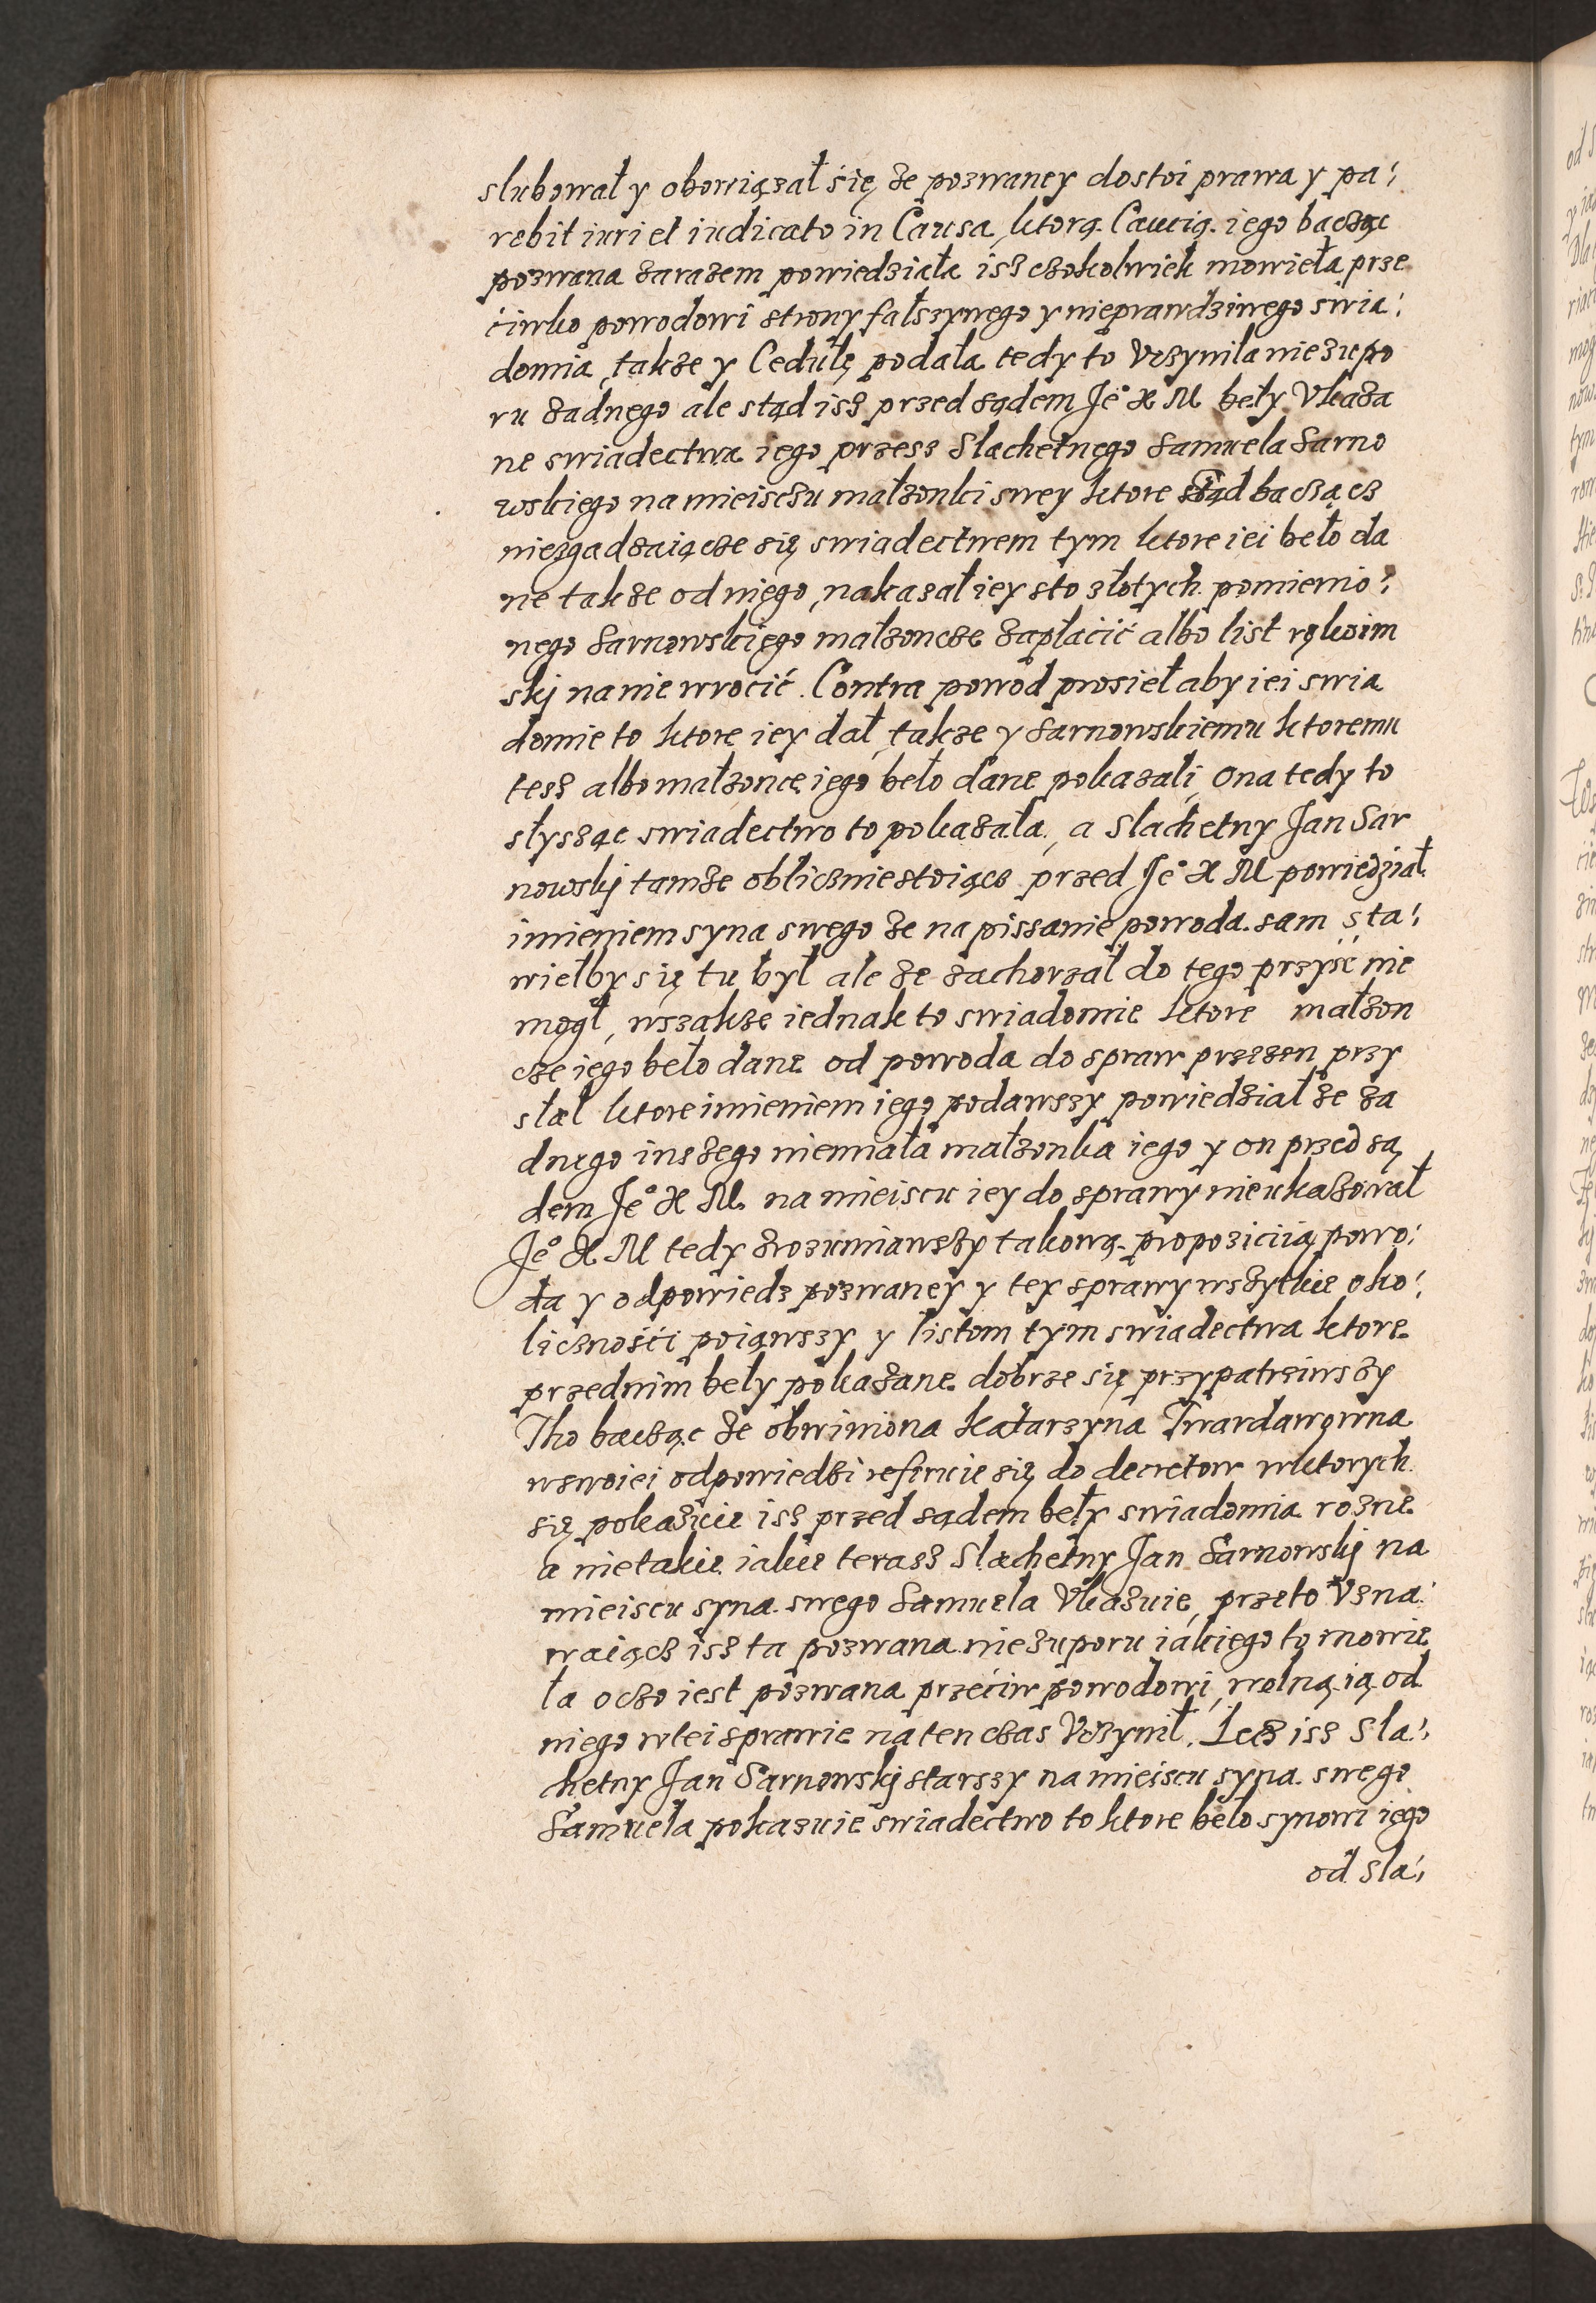 slubował y obowiązał się ze pozwaney dostoi prawa y pa:
rebit iuri et iudicato in Causa, ktorą Caucią iego bacząc
pozwana zarazem powiedziała isz czokolwiek mowieła prze
ćiwko powodowi strony fałszywego y nieprawdziwego swia:
domia, takze y Cedułę podała tedy to Vczyniła nie z upo
ru zadnego ale stąd isz przed sądem Je° X M beły Vkaza
ne swiadectwa iego przesz Slachetnego Samuela Sarno
wskiego na mieisczu małzonki swey ktore sąd bacząc
niezgadzaiącze się swiadectwem tym ktore iei beło da
ne takze od niego, nakazał iey sto złotych pomienio:
nego Sarnowskiego małzoncze zapłacić albo list rękoim
skj na nie wrocić. Contra powod prosieł aby iei swia
domie to ktore iey dał, takze y Sarnowskiemu ktoremu
tesz albo małzonce iego beło dane pokazali, ona tedy to
słysząc swiadectwo to pokazała, a Slachetny Jan Sar
nowskj tamze oblicznie stoiącz przed Je° X M powiedział
imieniem syna swego ze na pissanie powoda sam sta:
wiełby się tu był ale ze zachorzał do tego przyść nie
mogł, wszakze iednak to swiadomie ktore małzon
cze iego beło dane od powoda do spraw przezen przy
słał ktore imieniem iego podawszy powiedział ze za
dnego inszego niemiała małzonka iego y on przed są
dem Je° X M na mieiscu iey do sprawy nie ukazował
Je° X M tedy zrozumiawszy takową propoziciią powo:
da y odpowiedz pozwaney y tey sprawy wszytkie oko:
licznośći poiąwszy y listom tym swiadectwa ktore
przed nim beły pokazane dobrze się przypatrziwszy
Tho bacząc ze obwiniona Katarzyna Twardawowna
w swoiei odpowiedzi referuie się do decretow w ktorych
się pokazuie isz przed sądem beły swiadomia rozne
a nie takie iakie terasz Slachetny Jan Sarnowskj na
mieiscu syna swego Samuela Vkazuie, przeto Vzna:
waiącz isz ta pozwana nie z uporu iakiego to mowie
ła o czo iest pozwana przećiw powodowi, wolną ią od
niego w tei sprawie na ten czas Vczynił. Lecz isz Sla:
chetny Jan Sarnowskj starszy na mieiscu syna swego
Samuela pokazuie swiadectwo to ktore beło synowi iego
od Sla: